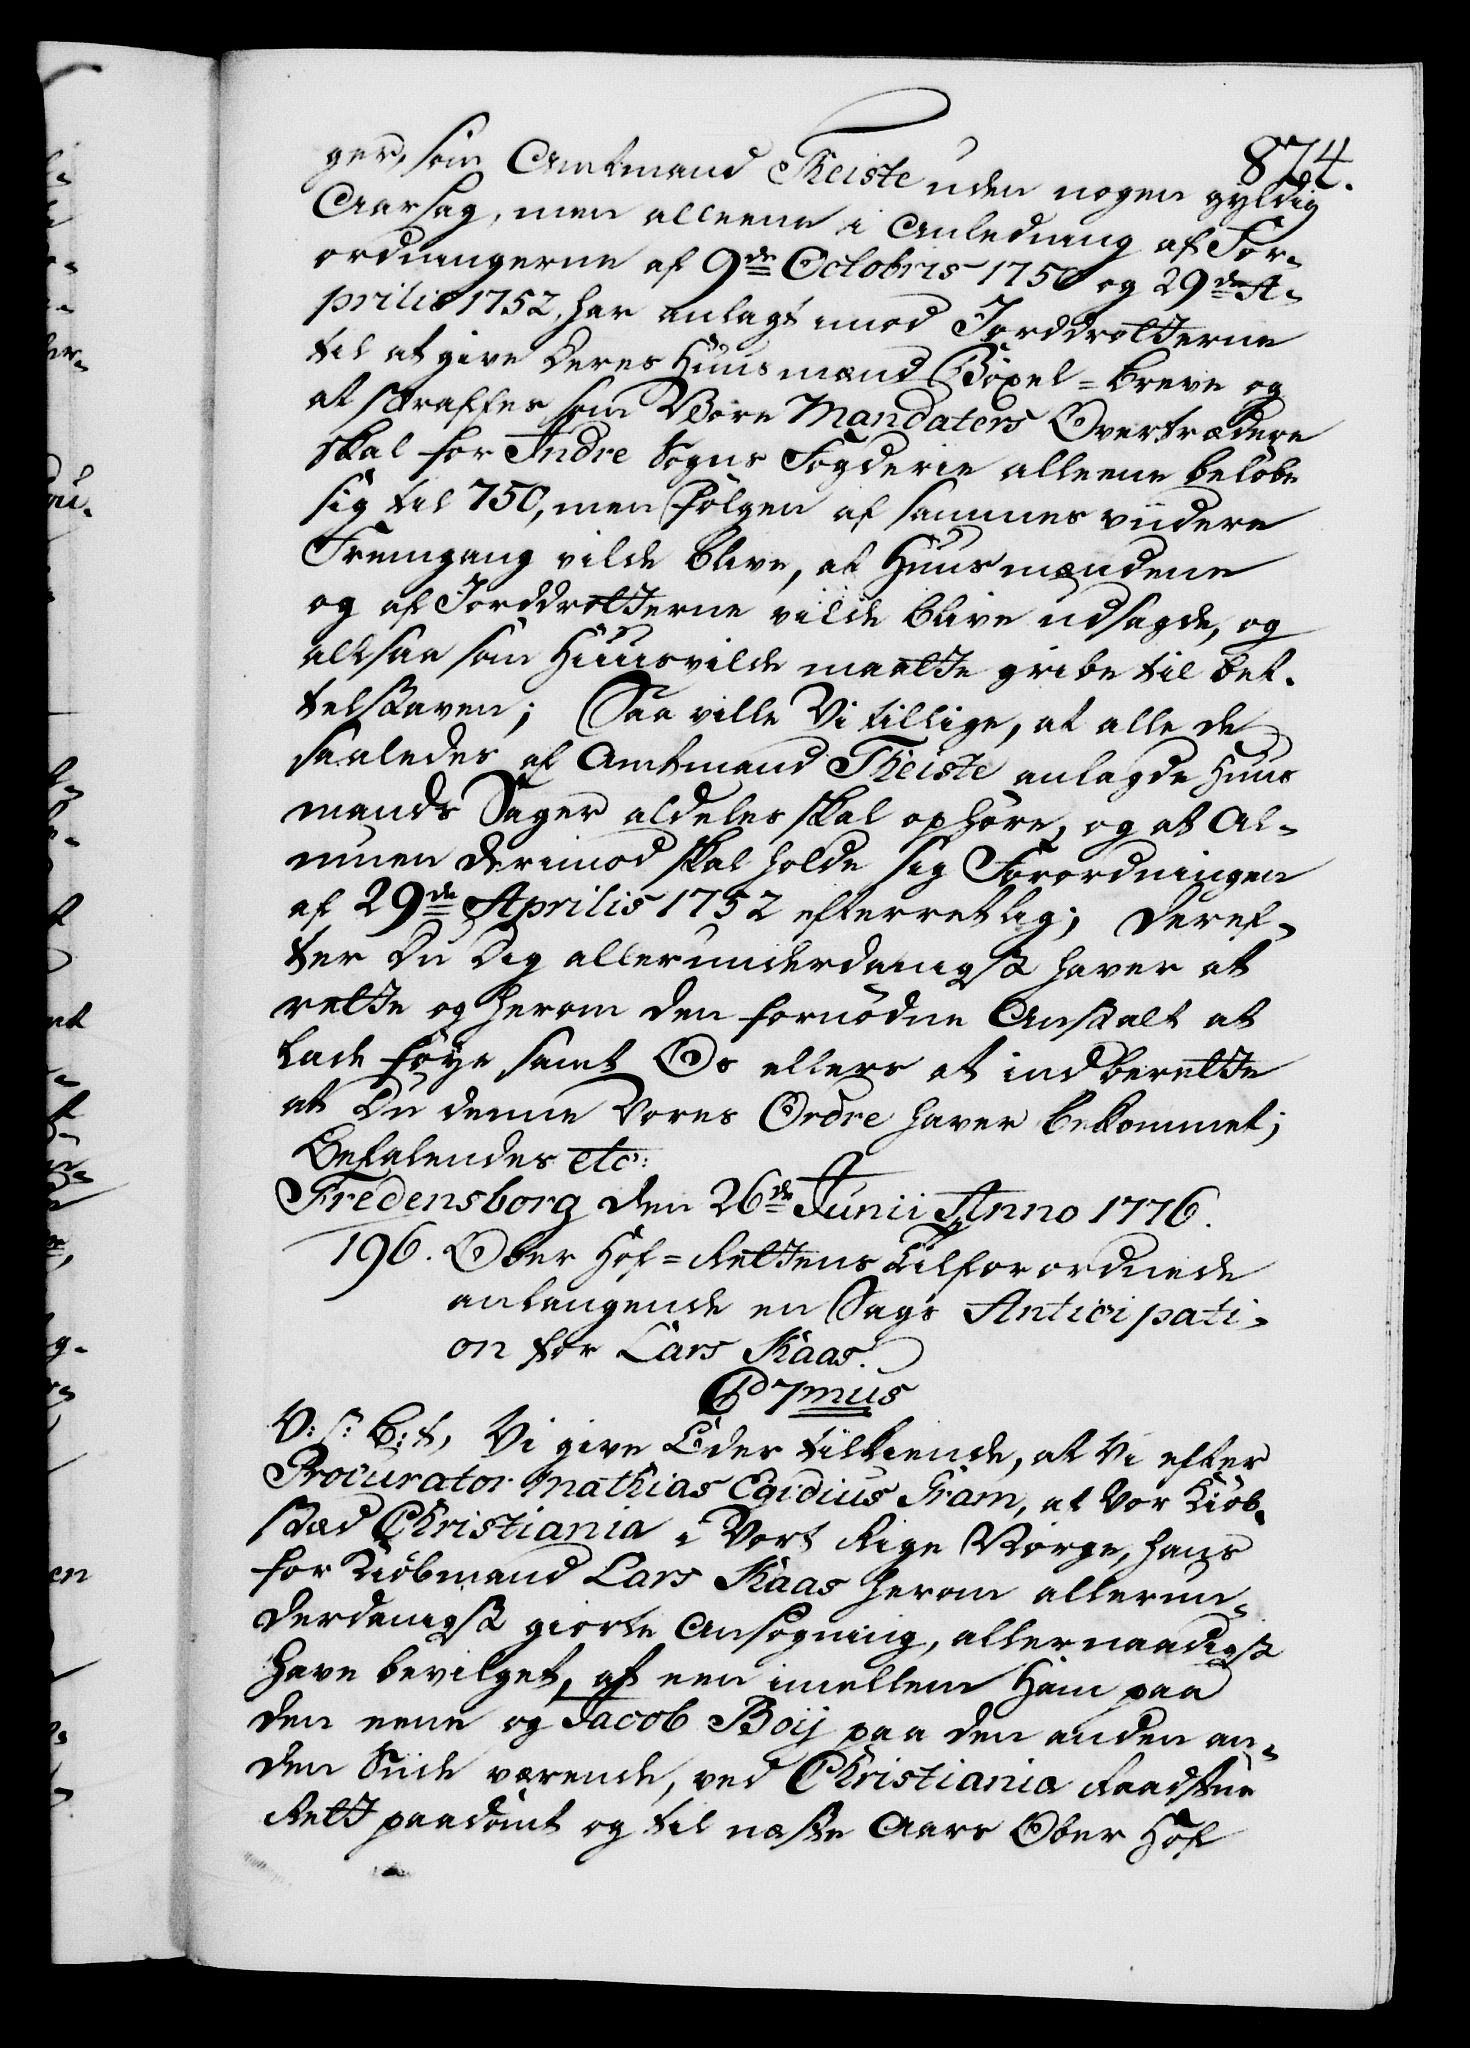 874.
ger, som Amtmand Theiste uden nogen gyldig
Aarsag, men alleene i Anledning af For-
ordningerne af 9de Octobris 1750 og 29de A-
prilis 1752, har anlagt imod Jorddrotterne
til at give deres Huusmænd Böxel=breve og
at straffes som Vore Mandaters Overtrædere
skal for Indre Sogns Fogderie alleene belöbe
sig til 750, men Fölgen af sammes viidere
Fremgang vilde blive, at Huusmændene
og af Jorddrotterne vilde blive udsagde, og
altsaa som Huusvilde maatte gribe til bet-
telstaven; Saa ville Vi tillige, at alle de
saaledes af Amtmand Theiste anlagde Huus
mands Sager aldeles skal ophöre, og at Al-
muen derimod skal holde sig Forordningen
af 29de Aprilis 1752 efterretlig; Deref-
ter Du Dig allerunderdanigst haver at
rette og herom den fornödne Anstalt at
lade föye samt Os ellers at indberette
at Du denne Vores Ordre haver bekommet;
Befalendes etc:
Fredensborg den 26de Junii Anno 1776.
196. Ober Hof=Rettens Tilforordnede
anlangende en Sags Anticipati-
on for Lars Kaas.
C 7mus
V: s: B: t, Vi give Eder tilkiende, at Vi efter
Procurator Mathias Egidius Gram, at Vor Kiöb-
stæd Christiania i Vort Rige Norge, hans
for Kiöbmand Lars Kaas herom allerun-
derdanigst giorte Ansögning, allernaadigst
have bevilget, at een imellem Ham paa
den eene og Jacob Boij paa den anden an-
den Siide værende, ved Christiania Raadstue
Rett paadömt og til næste Aars Ober Hof